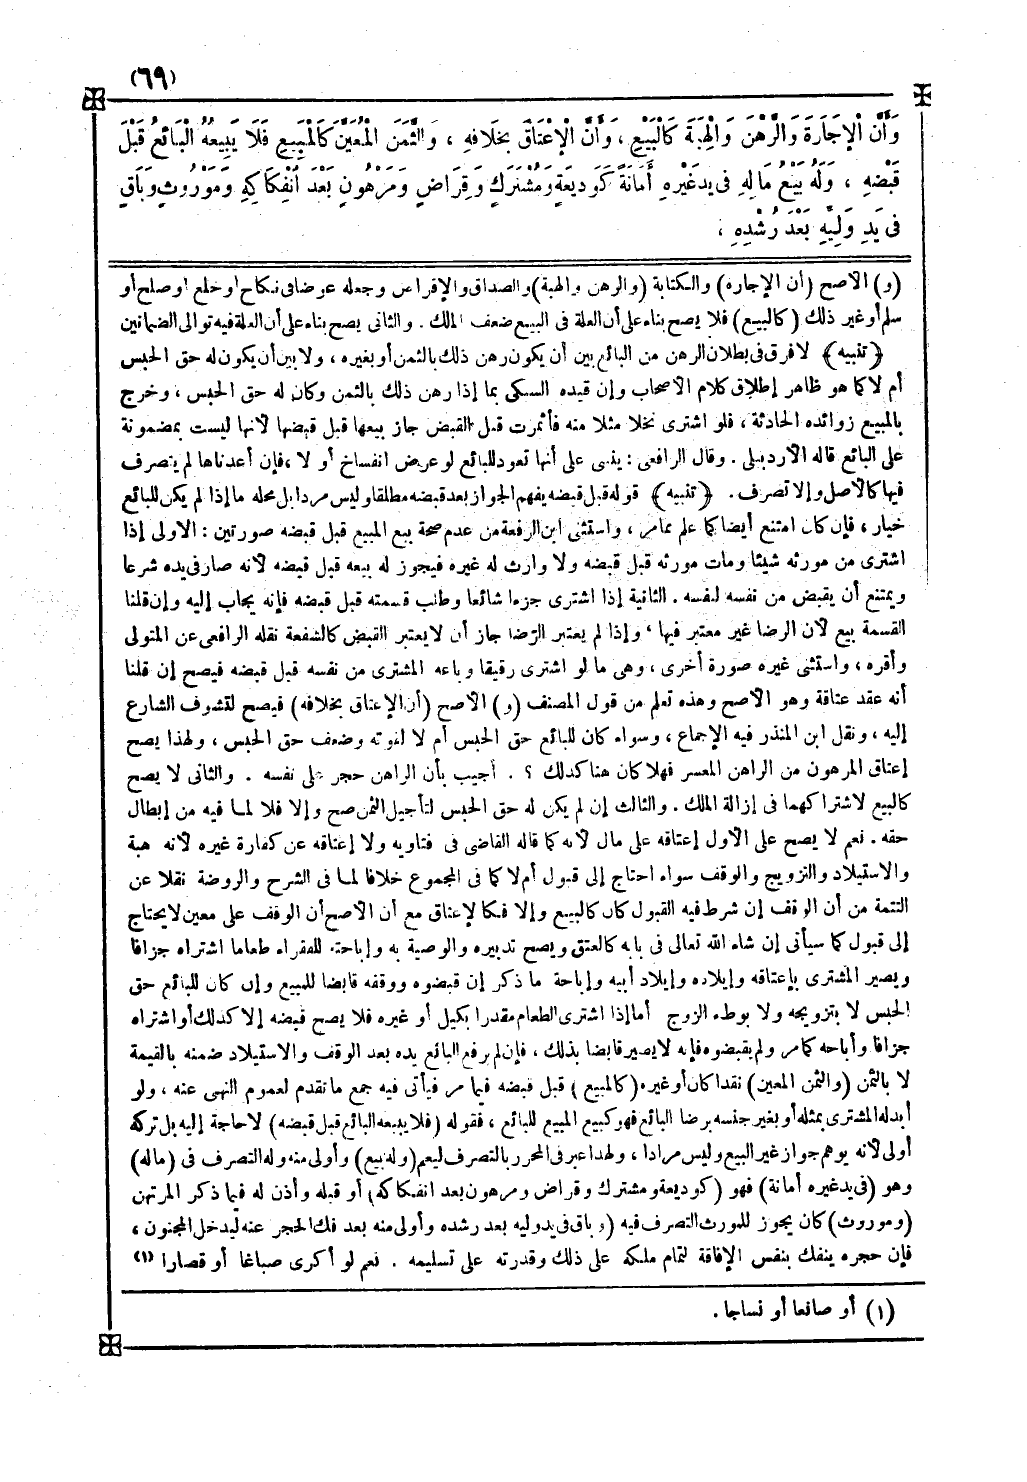 (٦٩)
وَأَنَّ الْإِجَارَةَ وَالرَّهْنَ وَالْهِبَةَ كَالْبَيْعِ ، وَأَنَّ الْإِعْتَاقَ بِخِلَافِهِ ، وَالثَّمَنَ الْمُعَيَّنَ كَالْمَبِيعِ فَلَا يَبِيعُهُ الْبَائِعُ قَبْلَ
قَبْضِهِ ، وَلَهُ بَيْعُ مَالِهِ فِى يَدِ غَيْرِهِ أَمَانَةً كَوَدِيعَةٍ وَمُشْتَرَكٍ وَقِرَاضٍ وَمَرْهُونٍ بَعْدَ انْفِكَاكِهِ وَمَوْرُوثٍ وَبَاقٍ
فِى يَدِ وَلِيِّهِ بَعْدَ رُشْدِهِ ،
(و) الأصح (أن الإجارة) والكتابة (والرهن والهبة) والصداق والإقراض وجعله عوضا فى نكاح أو خلع أو صلح أو
سلم أو غير ذلك (كالبيع) فلا يصح بناء على أن العلة فى البيع ضعف الملك . والثانى يصح بناء على أن العلة فيه توالى الضمانين
﴿تنبيه﴾ لا فرق فى بطلان الرهن من البائع بين أن يكون رهن ذلك بالثمن أو بغيره ، ولا بين أن يكون له حق الحبس
أم لا كما هو ظاهر إطلاق كلام الأصحاب وإن قيده السبكى بما إذا رهن ذلك بالثمن وكان له حق الحبس ، وخرج
بالمبيع زوائده الحادثة ، فلو اشترى نخلا مثلا منه فأثمرت قبل القبض جاز بيعها قبل قبضها لأنها ليست بمضمونة
على البائع قاله الأردبيلى . وقال الرافعى : يبنى على أنها تعود للبائع لو عرض انفساخ أو لا ، فإن أعدناها لم يتصرف
فيها كالأصل وإلا تصرف . ﴿تنبيه﴾ قوله قبل قبضه يفهم الجواز بعد قبضه مطلقا وليس مرادا بل محله ما إذا لم يكن للبائع
خيار ، فإن كان امتنع أيضا كما علم مما مر ، واستثنى ابن الرفعة من عدم صحة بيع المبيع قبل قبضه صورتين : الأولى إذا
اشترى من مورثه شيئا ومات مورثه قبل قبضه ولا وارث له غيره فيجوز له بيعه قبل قبضه لأنه صار فى يده شرعا
ويمتنع أن يقبض من نفسه لنفسه . الثانية إذا اشترى جزءا شائعا وطلب قسمته قبل قبضه فإنه يجاب إليه وإن قلنا
القسمة بيع لأن الرضا غير معتبر فيها ، وإذا لم يعتبر الرضا جاز أن لا يعتبر القبض كالشفعة نقله الرافعى عن المتولى
وأقره ، واستثنى غيره صورة أخرى ، وهى ما لو اشترى رقيقا وباعه المشترى من نفسه قبل قبضه فيصح إن قلنا
أنه عقد عتاقة وهو الأصح وهذه تعلم من قول المصنف (و) الأصح (أن الإعتاق بخلافه) فيصح لتشوف الشارع
إليه ، ونقل ابن المنذر فيه الإجماع ، وسواء كان للبائع حق الحبس أم لا لقوته وضعف حق الحبس ، ولهذا يصح
إعتاق المرهون من الراهن المعسر فهلا كان هنا كذلك ؟ . أجيب بأن الراهن حجر على نفسه . والثانى لا يصح
كالبيع لاشتراكهما فى إزالة الملك . والثالث إن لم يكن له حق الحبس لتأجيل الثمن صح وإلا فلا لما فيه من إبطال
حقه . نعم لا يصح على الأول إعتاقه على مال لأنه كما قاله القاضى فى فتاويه ولا إعتاقه عن كفارة غيره لأنه هبة
والاستيلاد والتزويج والوقف سواء احتاج إلى قبول أم لا كما فى المجموع خلافا لما فى الشرح والروضة نقلا عن
التتمة من أن الوقف إن شرط فيه القبول كان كالبيع وإلا فكالإعتاق مع أن الأصح أن الوقف على معين لا يحتاج
إلى قبول كما سيأتى إن شاء الله تعالى فى بابه كالعتق ويصح تدبيره والوصية به وإباحته للفقراء طعاما اشتراه جزافا
ويصير المشترى بإعتاقه وإيلاده وإيلاد أبيه وإباحة ما ذكر إن قبضوه ووقفه قابضا للمبيع وإن كان للبائع حق
الحبس لا بتزويجه ولا بوطء الزوج أما إذا اشترى الطعام مقدرا بكيل أو غيره فلا يصح قبضه إلا كذلك أو اشتراه
جزافا وأباحه كما مر ولم يقبضوه فإنه لا يصير قابضا بذلك ، فإن لم يرفع البائع يده بعد الوقف والاستيلاد ضمنه بالقيمة
لا بالثمن (والثمن المعين) نقدا كان أو غيره (كالمبيع) قبل قبضه فيما مر فيأتى فيه جمع ما تقدم لعموم النهى عنه ، ولو
أبدله المشترى بمثله أو بغير جنسه برضا البائع فهو كبيع المبيع للبائع ، فقوله (فلا يبيعه البائع قبل قبضه) لا حاجة إليه بل تركه
أولى لأنه يوهم جواز غير البيع وليس مرادا ، ولهذا عبر فى المحرر بالتصرف ليعم (وله بيع) وأولى منه وله التصرف فى (ماله)
وهو (فى يد غيره أمانة) فهو (كوديعة ومشترك وقراض ومرهون بعد انفكاكه) أو قبله وأذن له فيما ذكر المرتهن
(وموروث) كان يجوز للمورث التصرف فيه (وباق فى يد وليه بعد رشده وأولى منه بعد فك الحجر عنه ليدخل المجنون ،
فإن حجره ينفك بنفس الإفاقة لتمام ملكه على ذلك وقدرته على تسليمه . نعم لو أكرى صباغا أو قصارا (١)
(١) أو صانعا أو نساجا .